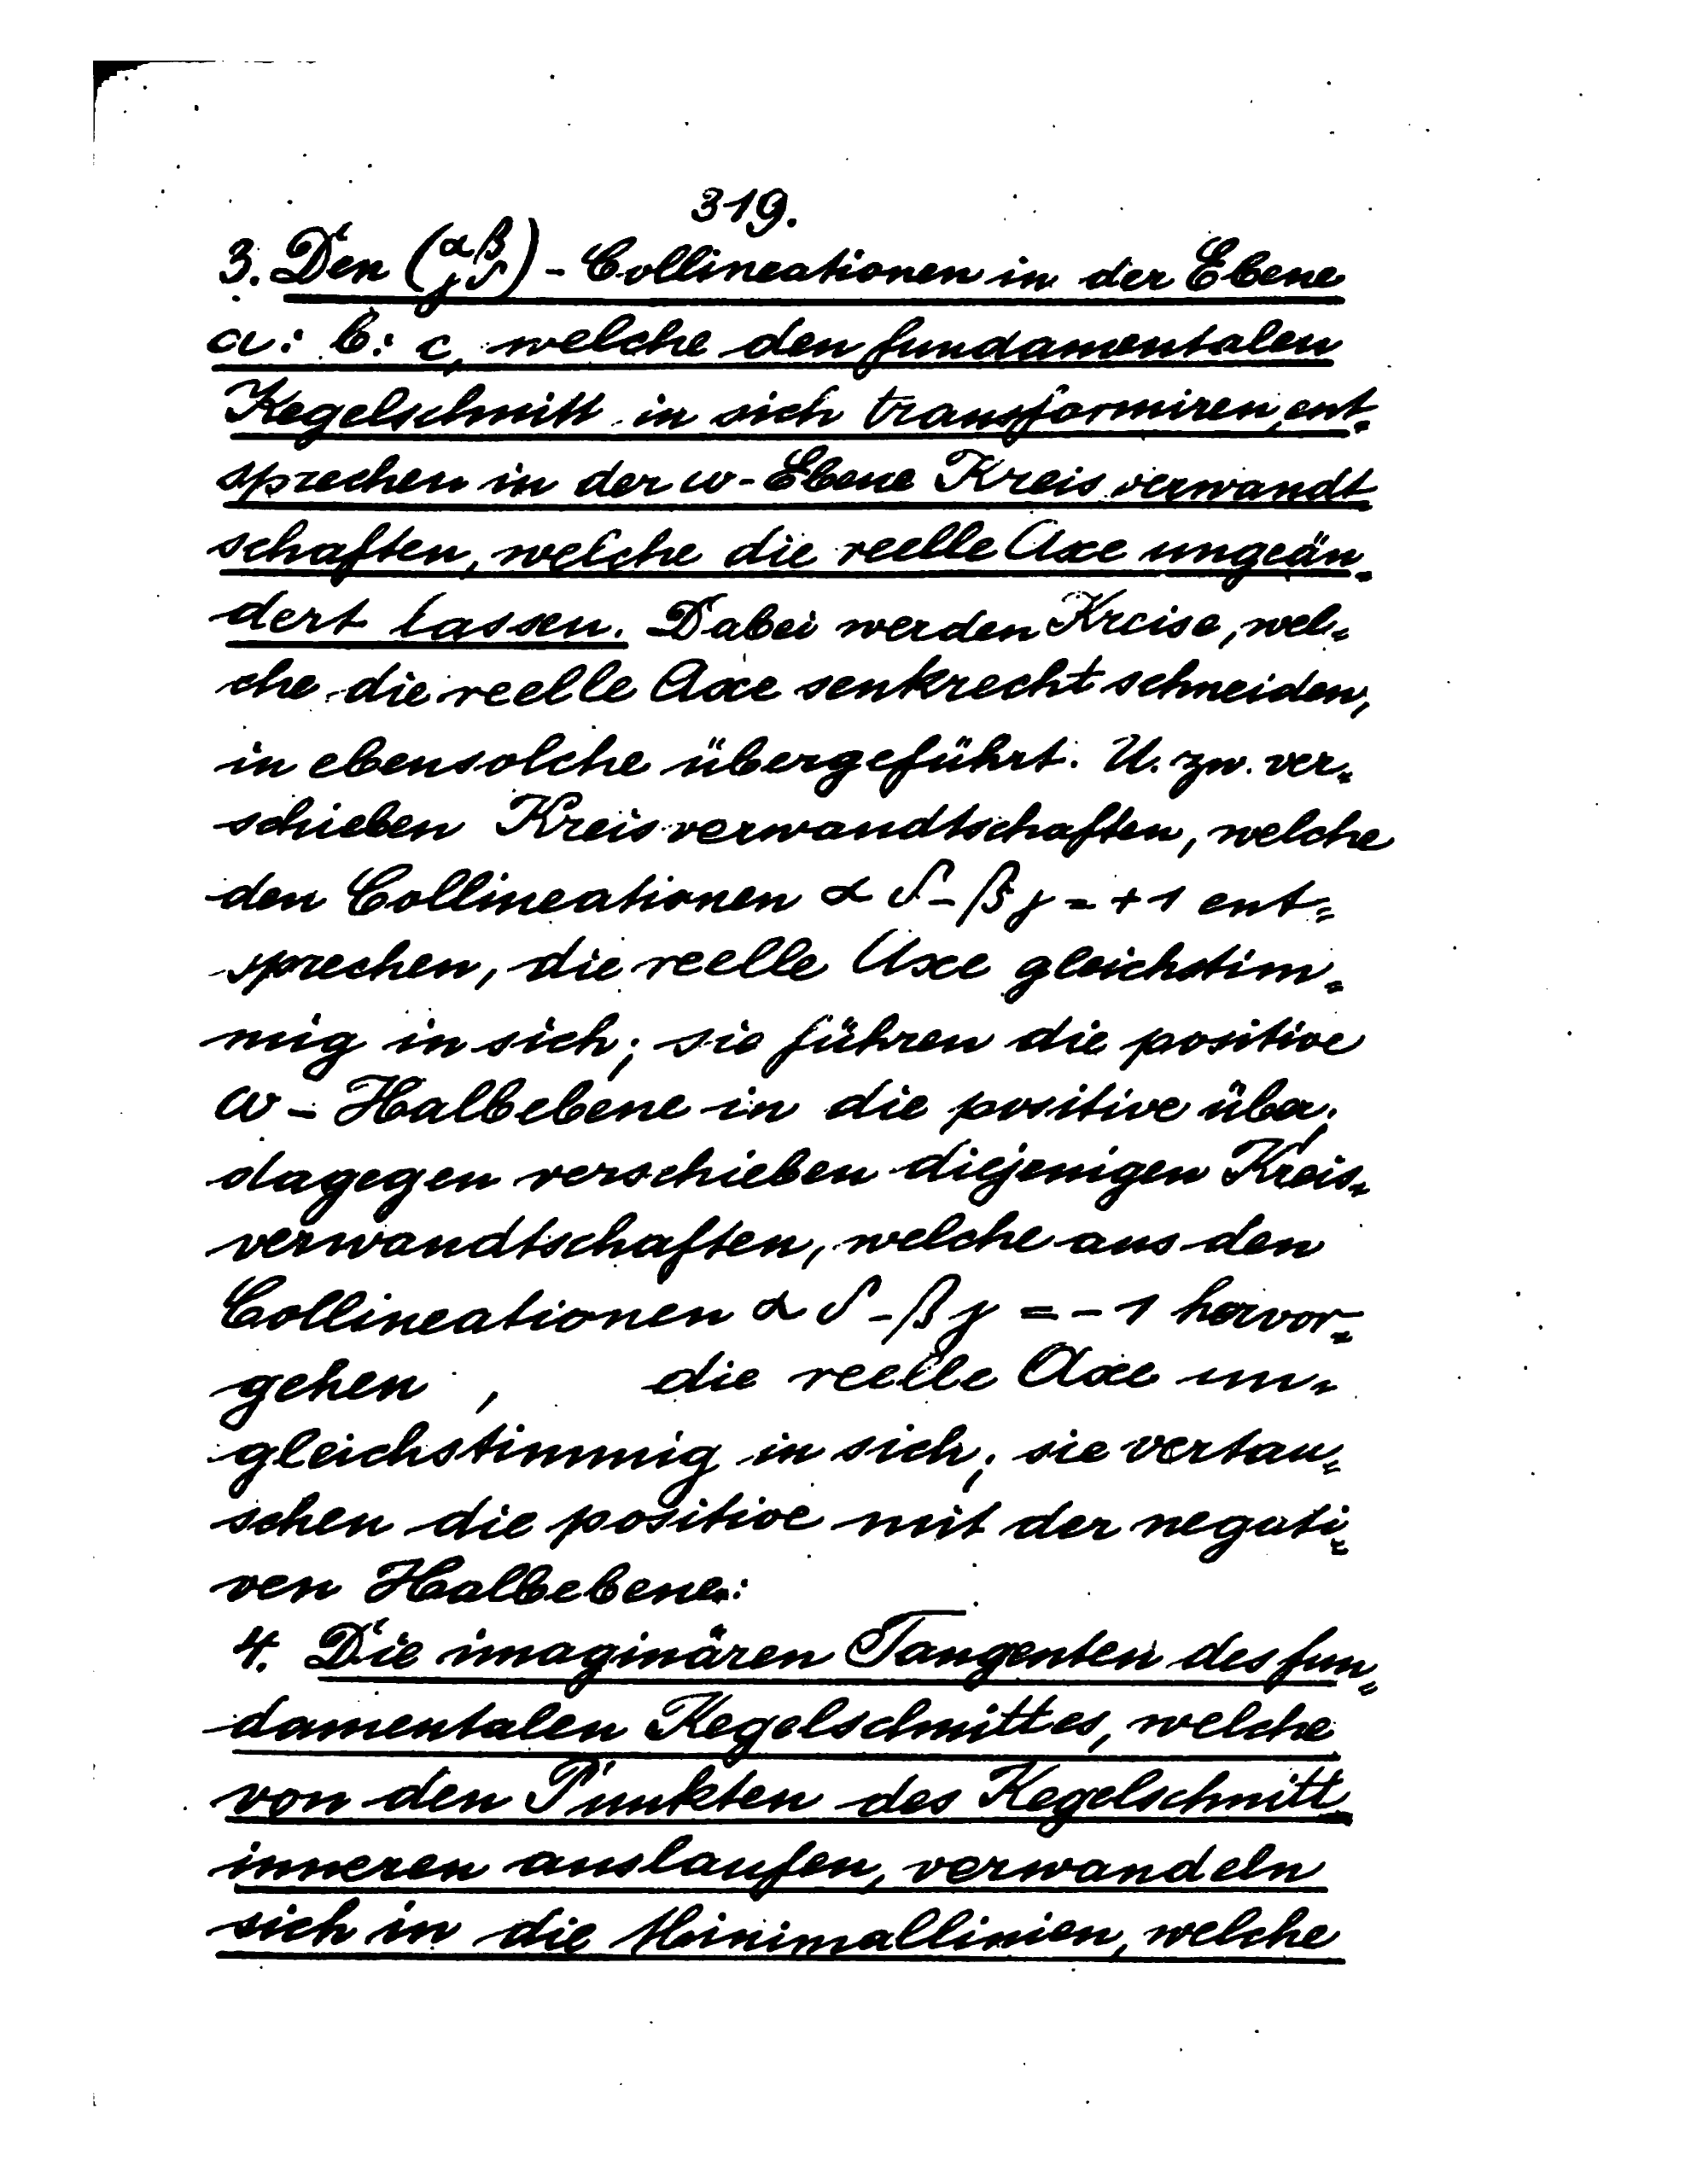 319.
3. Den (α β γ δ) - Collineationen in der Ebene
a: b: c, welche den fundamentalen
Kegelschnitt in sich transformiren, ent-
sprechen in der ω-Ebene Kreisverwandt
schaften, welche die reelle Axe ungeän-
dert lassen. Dabei werden Kreise, wel-
che die reelle Axe senkrecht schneiden,
in ebensolche übergeführt. U. zw. ver-
schieben Kreisverwandtschaften, welche
den Collineationen α δ - β γ = + 1 ent=
sprechen, die reelle Axe gleichstim-
mig in sich; sie führen die positive
ω - Halbebene in die positive über;
dagegen verschieben diejenigen Kreis-
verwandtschaften, welche aus den
Collineationen α δ - β γ = - 1 hervor=
gehen , die reelle Axe un-
gleichstimmig in sich; sie vertau=
schen die positive mit der negati=
ven Halbebene.
4. Die imaginären Tangenten des fun=
damentalen Kegelschnittes, welche
von den Punkten des Kegelschnitt-
inneren auslaufen, verwandeln
sich in die Minimallinien, welche